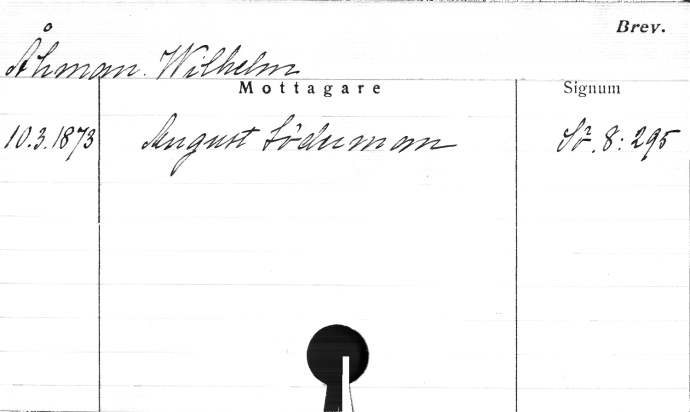 Brev.
Åhman. Wilhelm
Mottagare Signum
10.3.1873 August Söderman Sö. 8:295